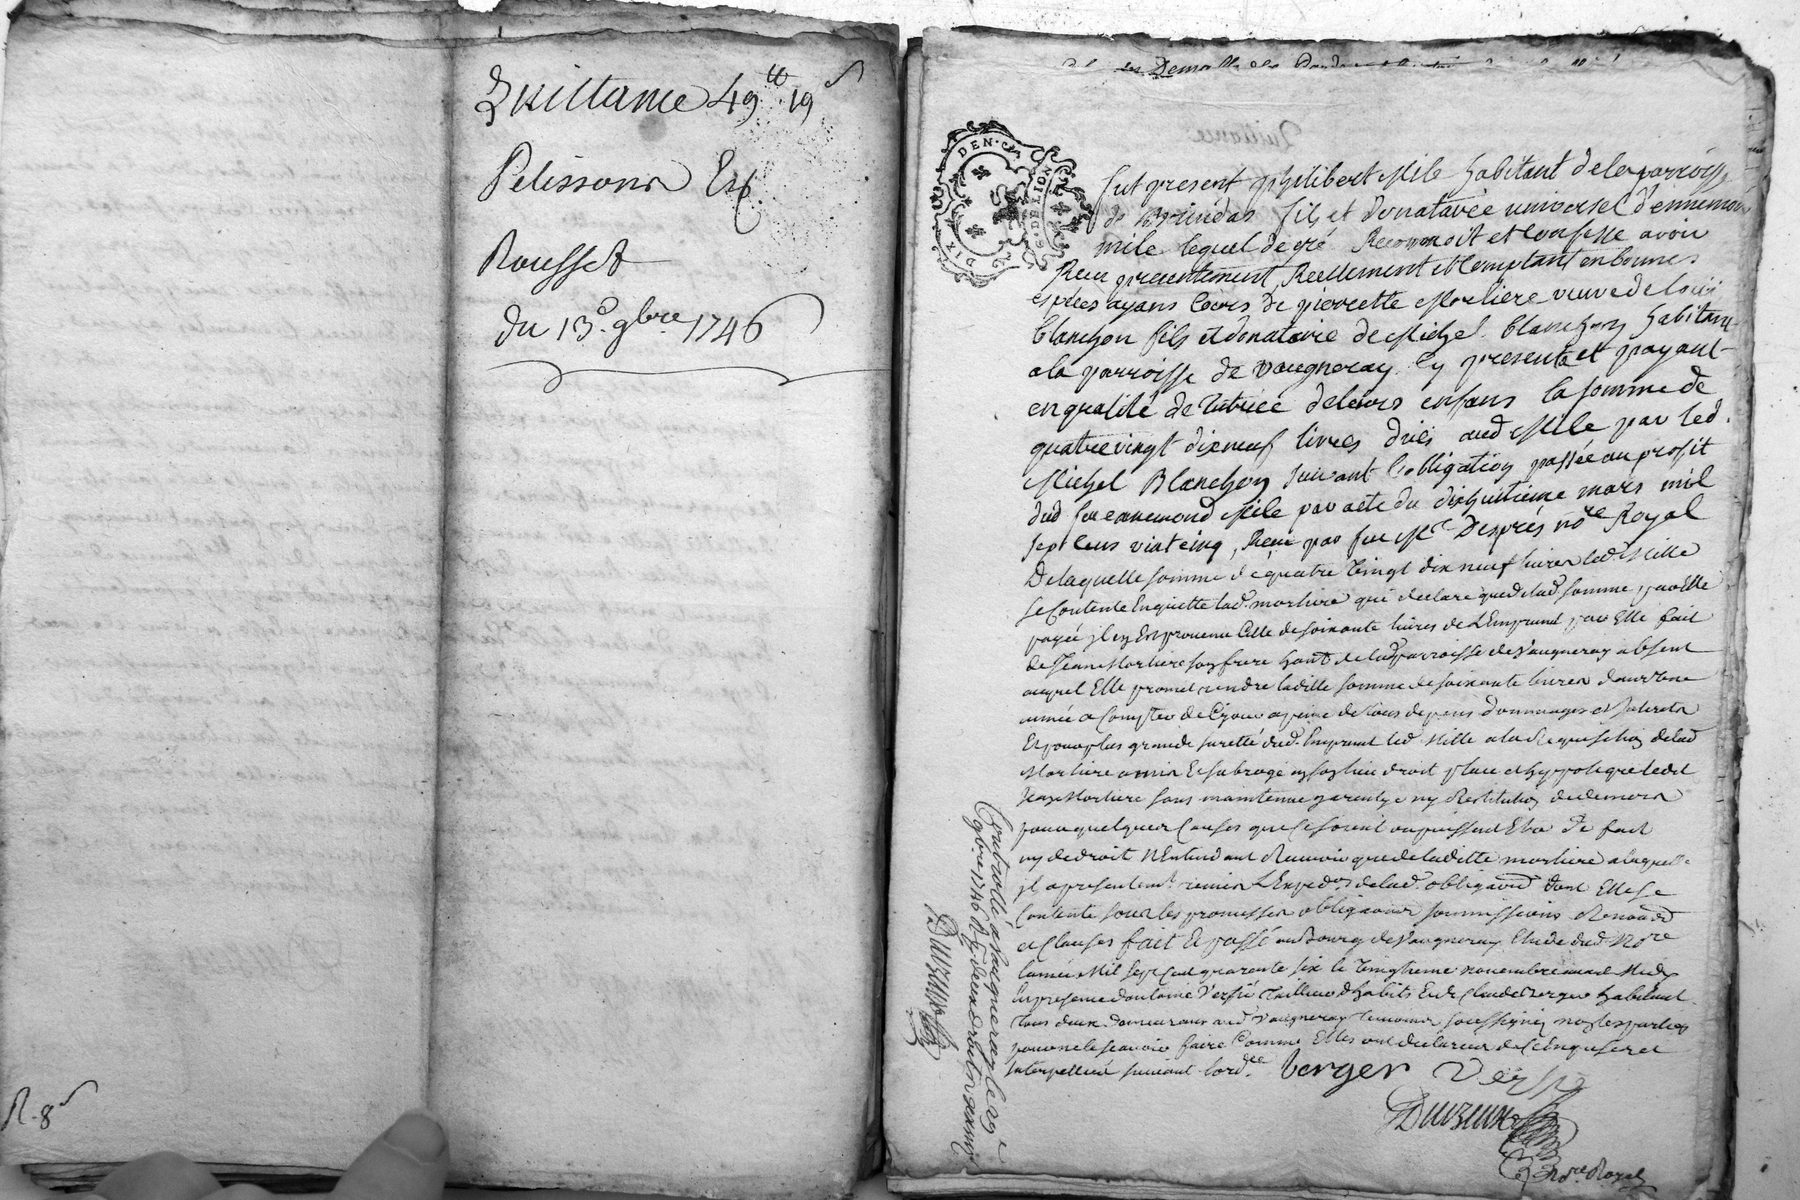 Quittance 49tt 19s
Pelisson Et
Rousset
du 13e. 9bre 1746
R. 8s
DEN. G.
S. DE LION
DIX
fut present philibert Mile habitant de la parroisse
de fils et donataire universel d'ennemond
mile lequel de gré Reconnoit et confesse avoir
Receu presentement, Reellement et Comptant en bonnes
espèces ayans Cours de pierrette Morliere veuve de Louis
blanchon fils et donataire de Michel blanchon habitant
a la parroisse de vaugneray Cy presente et payant
en qualité de tutrice de leurs enfans la somme de
quatre vingt dix neuf livres dües aud Mile par led.
Michel Blanchon suivant l'obligation passée au profit
dud feu ennemond Mile par acte du dixhuitième mars mil
sept cens vint cinq, Receu par feu Me Desprès nore Royal
De laquelle somme de quatre Vingt dix neuf livres led Mille
se Contente En quitte lad. morliere qui declare que de lad. somme par Elle
payée il en Est provenu Celle de soixante livres de L'Emprunt par Elle fait
de Jean Morliere son frere habt de lad parroisse de Vaugneray absent
auquel Elle promet rendre laditte somme de soixante livres dans Une
année a Compter de Ce jour a peine de tous depens dommages et Interets
Et pour plus grande sureté dud. Emprunt led Mille a la Requisition de lad
Morliere a mis Et subrogé en son lieu droit place et hypoteque ledit
Jean Morliere sans maintenue garentye ny Restitution de deniers
pour quelques Causes que Ce soient ou puissent Etre de fait
ny de droit N'Entendant Recevoir que de laditte morliere a laquelle
il a presentemt. remis L'Expedon de lad. obligaond dont Elle se
Contente sous les promesses obligaons soumissions Renonons
et Clauses fait Et passé au Bourg de Vaugneray Etude dud Nore
l'année Mil sept Cent quarante six le Vingtieme novembre avant Midy
En presence d'antoine Verpié Tailleur d'habits Et de Claude Berger habitant
tous deux demeurans aud Vaugneray temoins soussignez non les parties
pour ne le scavoir faire Comme Elles ont declaré de Ce Enquises et
Interpellées suivant l'ordce
berger Verpié
Duvzeux
Nore Royal
Controllé a vaugneray le
9bre 1746